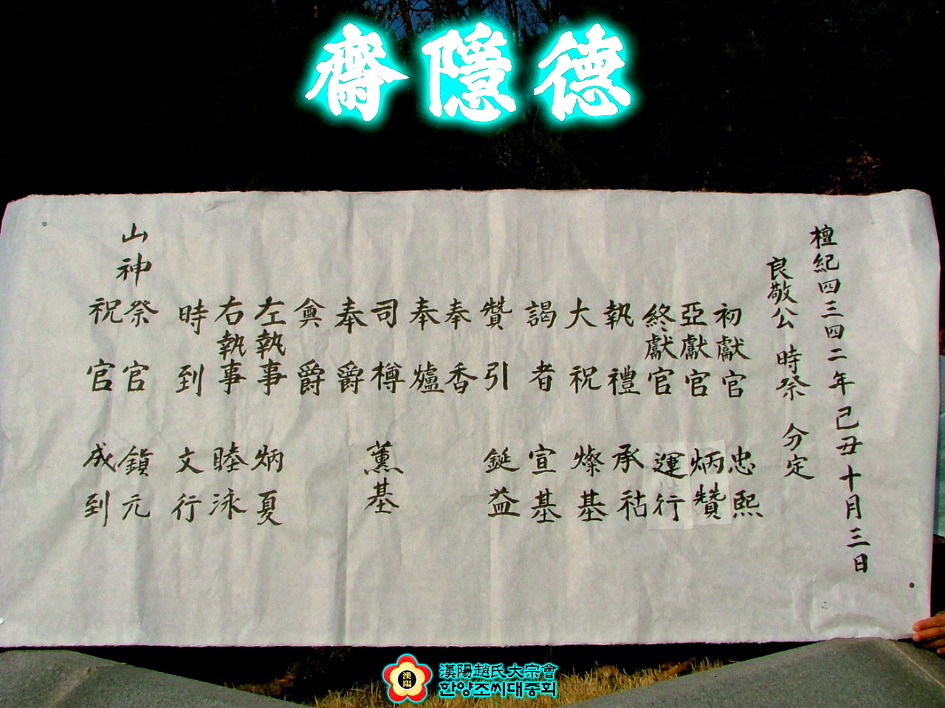 德隱齋
檀紀四三四二年己丑十月三日
良敬公 時祭 分定
初獻官 忠熙
亞獻官 炳贊
終獻官 運行
執禮 承祜
大祝 燦基
謁者 宣基
贊引 鋌益
奉香
奉爐
司樽 薰基
奉爵
奠爵
左執事 炳夏
右執事 睦泳
時到 文行
山神祭官 鎭元
祝官 成到
漢陽
漢陽趙氏大宗會
한양조씨대종회